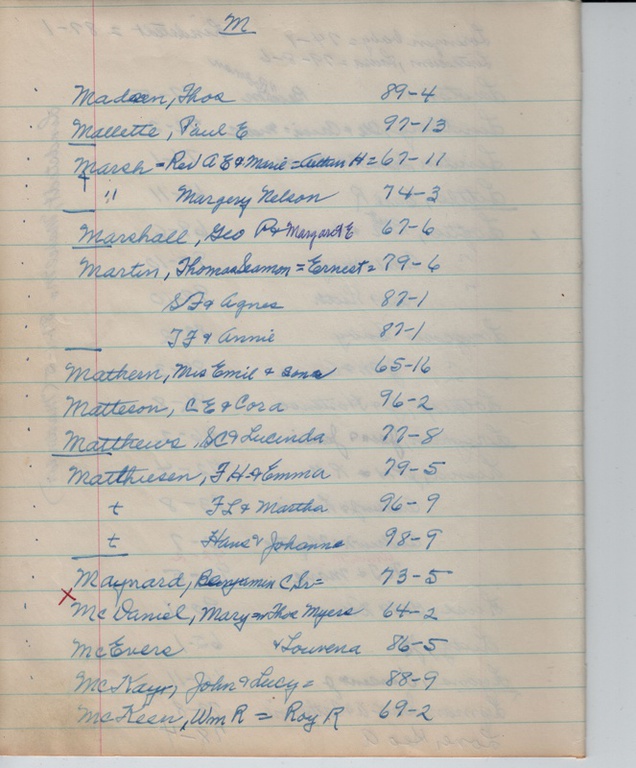 M
Madsen, Thos 89-4
Mallette, Paul E 97-13
Marsh - Rev A E & Marie = Autan H = 67-11
" Margery Nelson 74-3
Marshall, Geo P & Margaret E 67-6
Martin, Thomas Seamon = Ernest = 79-6
S F & Agnes 87-1
T F & Annie 87-1
Mathern, Mrs Emil & sons 65-16
Matteson, C E & Cora 96-2
Matthews, S C & Lucinda 77-8
Matthiesen, F H & Emma 79-5
t F L & Martha 96-9
t Hans & Johanne 98-9
Maynard, Benjamin C, Sr = 73-5
x
McDaniel, Mary = Thos Myers 64-2
McEvers & Louvena 86-5
McKay, John & Lucy = 88-9
McKeen, Wm R = Roy R 69-2